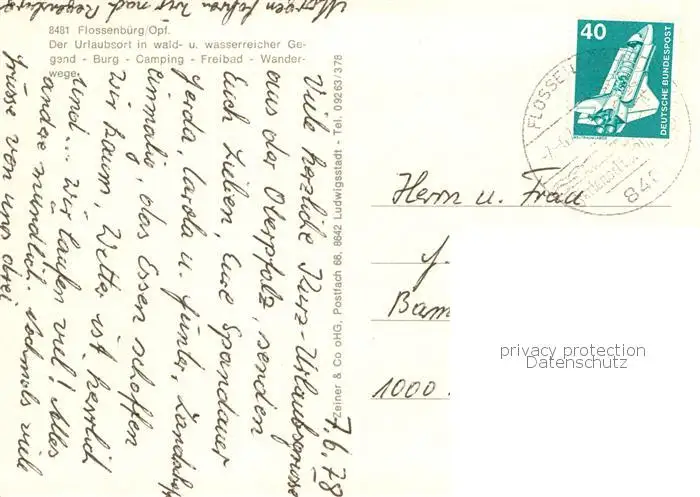 Morgen fahren wir nach Regensburg
8481 Flossenbürg/Opf.
Der Urlaubsort in wald- u. wasserreicher Ge-
gend - Burg - Camping - Freibad - Wander-
wege
7.6.78
Viele herzliche Kurz-Urlaubsgrüsse
aus der Oberpfalz, senden
Euch Lieben, Eure Spandauer
Gerda, Carola u. Günter, Landschaft
einmalig, das Essen schaffen
wir kaum, Wetter ist herrlich
und... wir laufen viel! Alles
andere mündlich. Nochmals viele
Grüsse von uns drei
Zeiner & Co oHG, Postfach 66, 8642 Ludwigsstadt - Tel. 09263/378
40
DEUTSCHE BUNDESPOST
FLOSSE
848
Herrn u. Frau
Bam
1000
privacy protection
Datenschutz